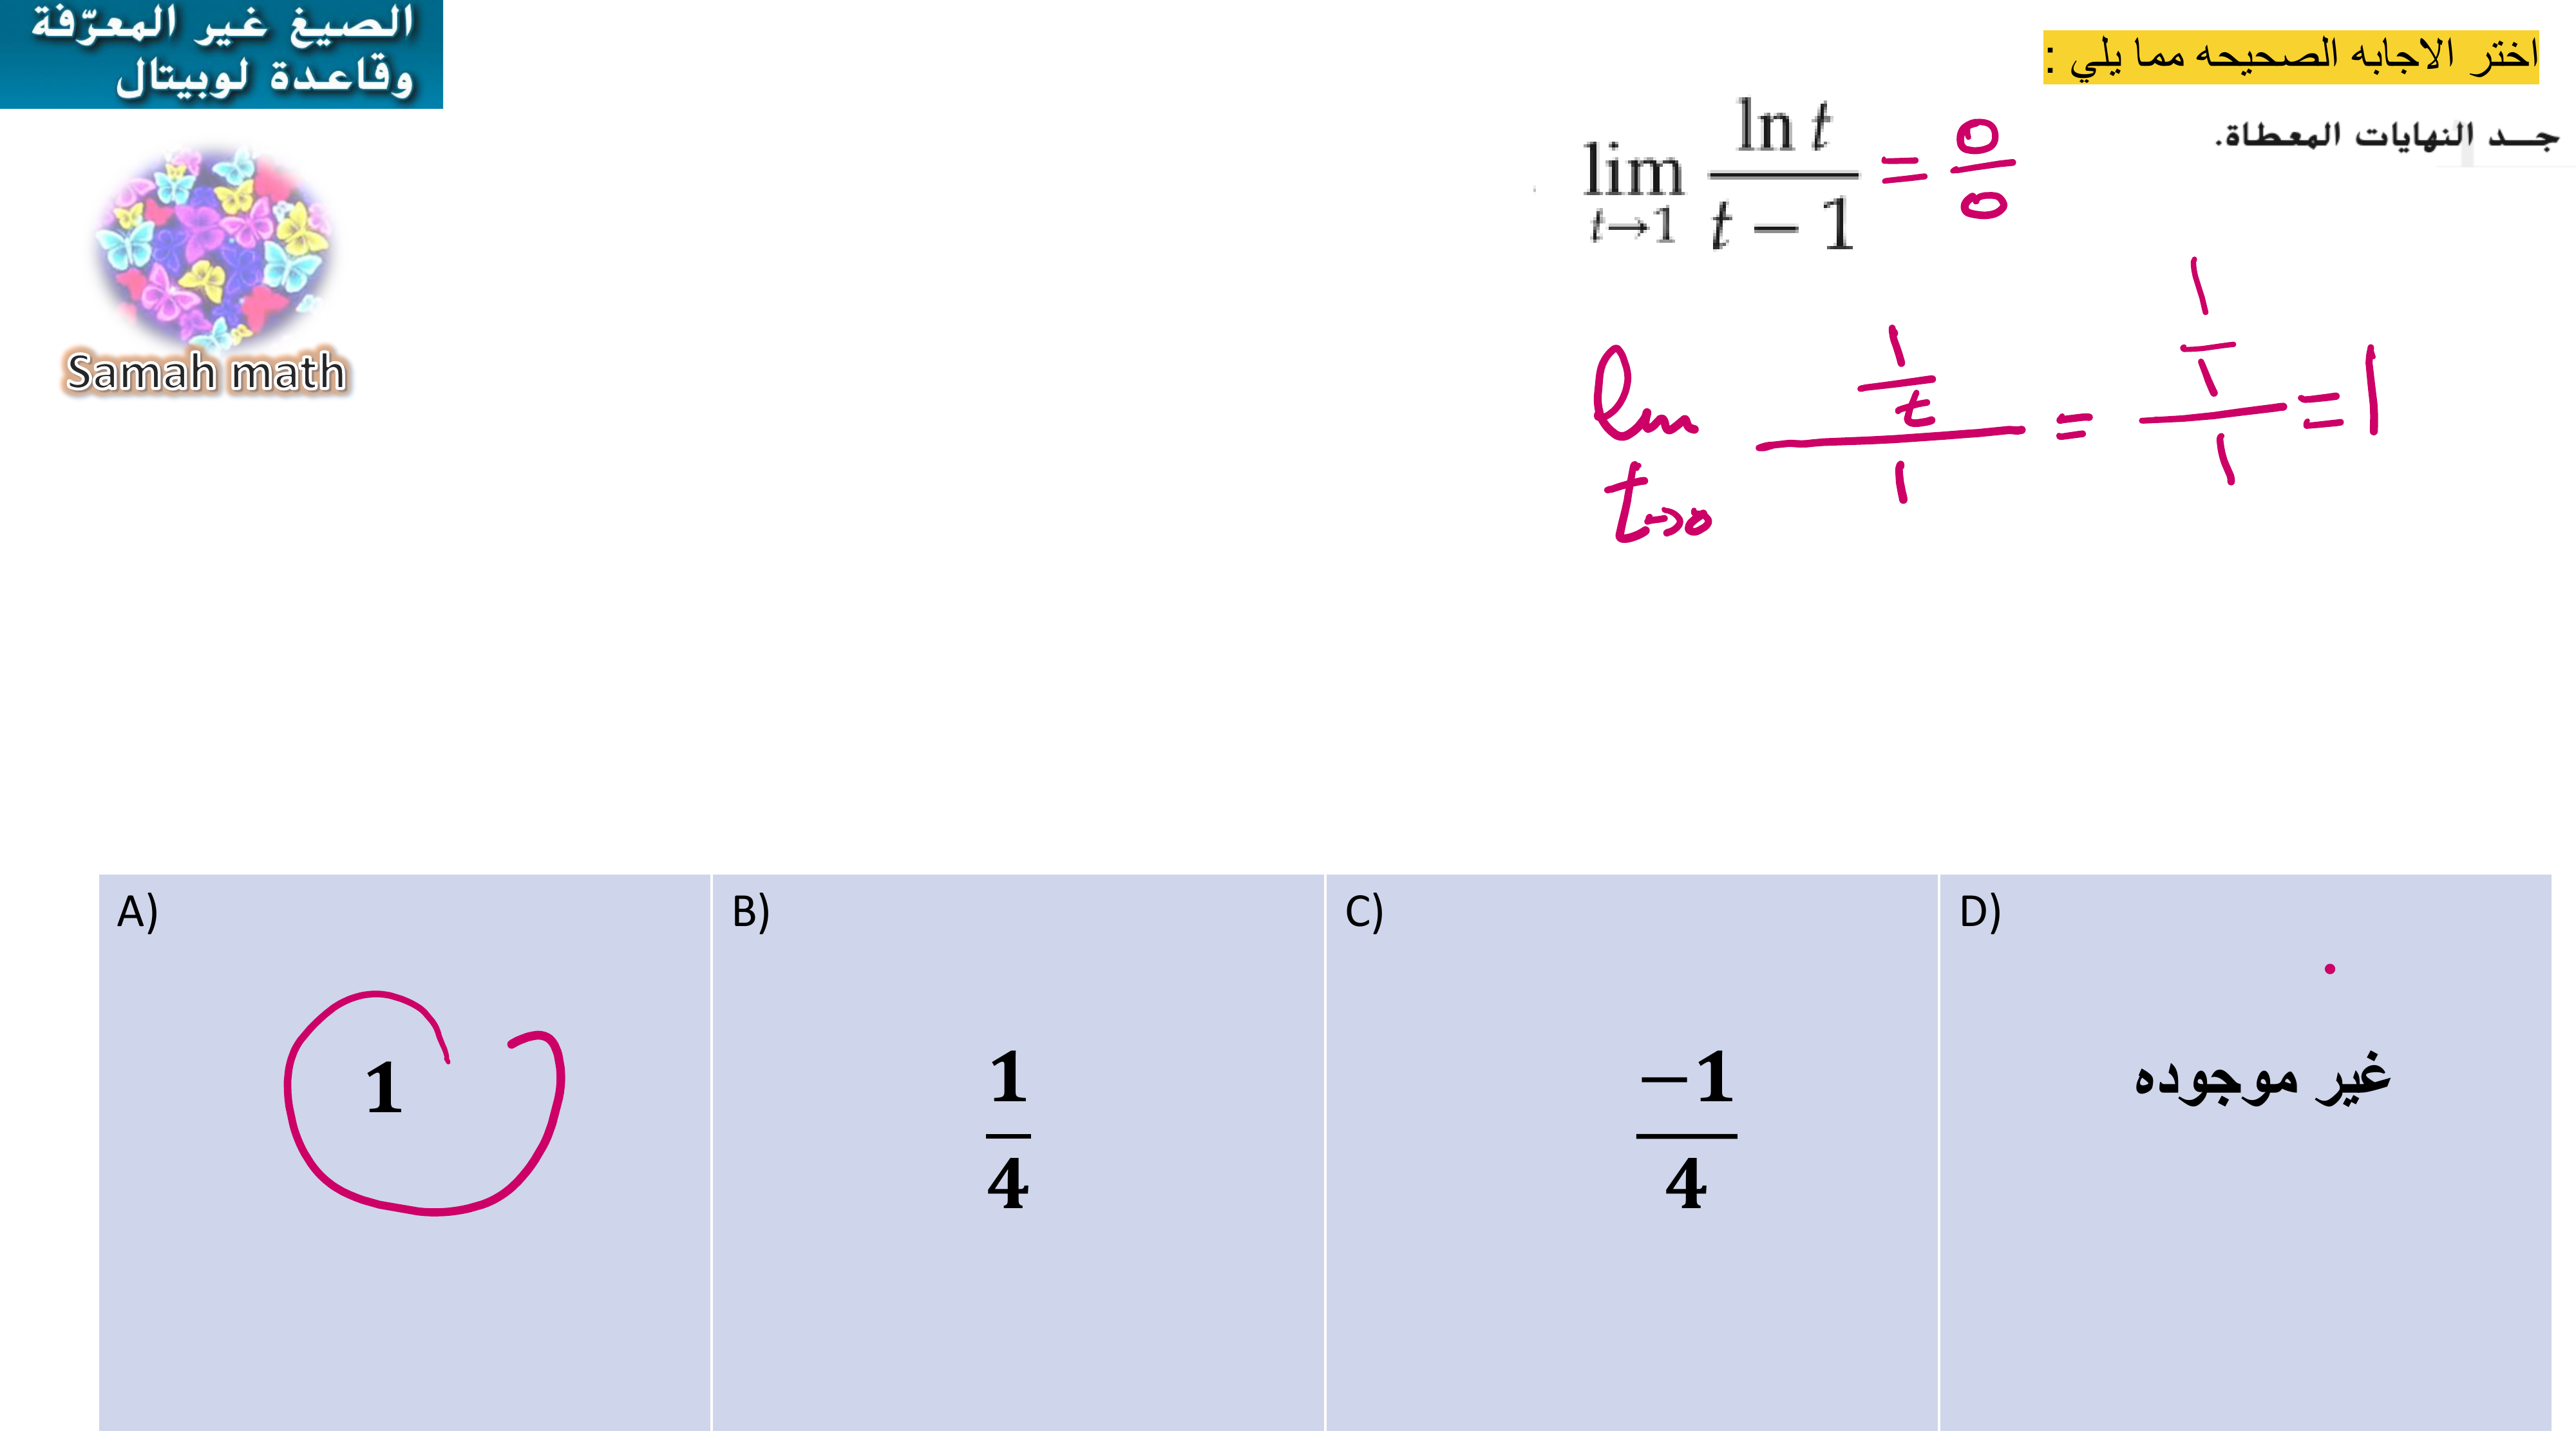 الصيغ غير المعرّفة
وقاعدة لوبيتال
Samah math
اختر الاجابه الصحيحه مما يلي :
جـــد النهايات المعطاة.
lim t→1 ln t / t − 1 = 0/0
lim t→0 (1/t)/1 = (1/1)/1 = 1
A) 1
B) 1/4
C) −1/4
D) غير موجوده